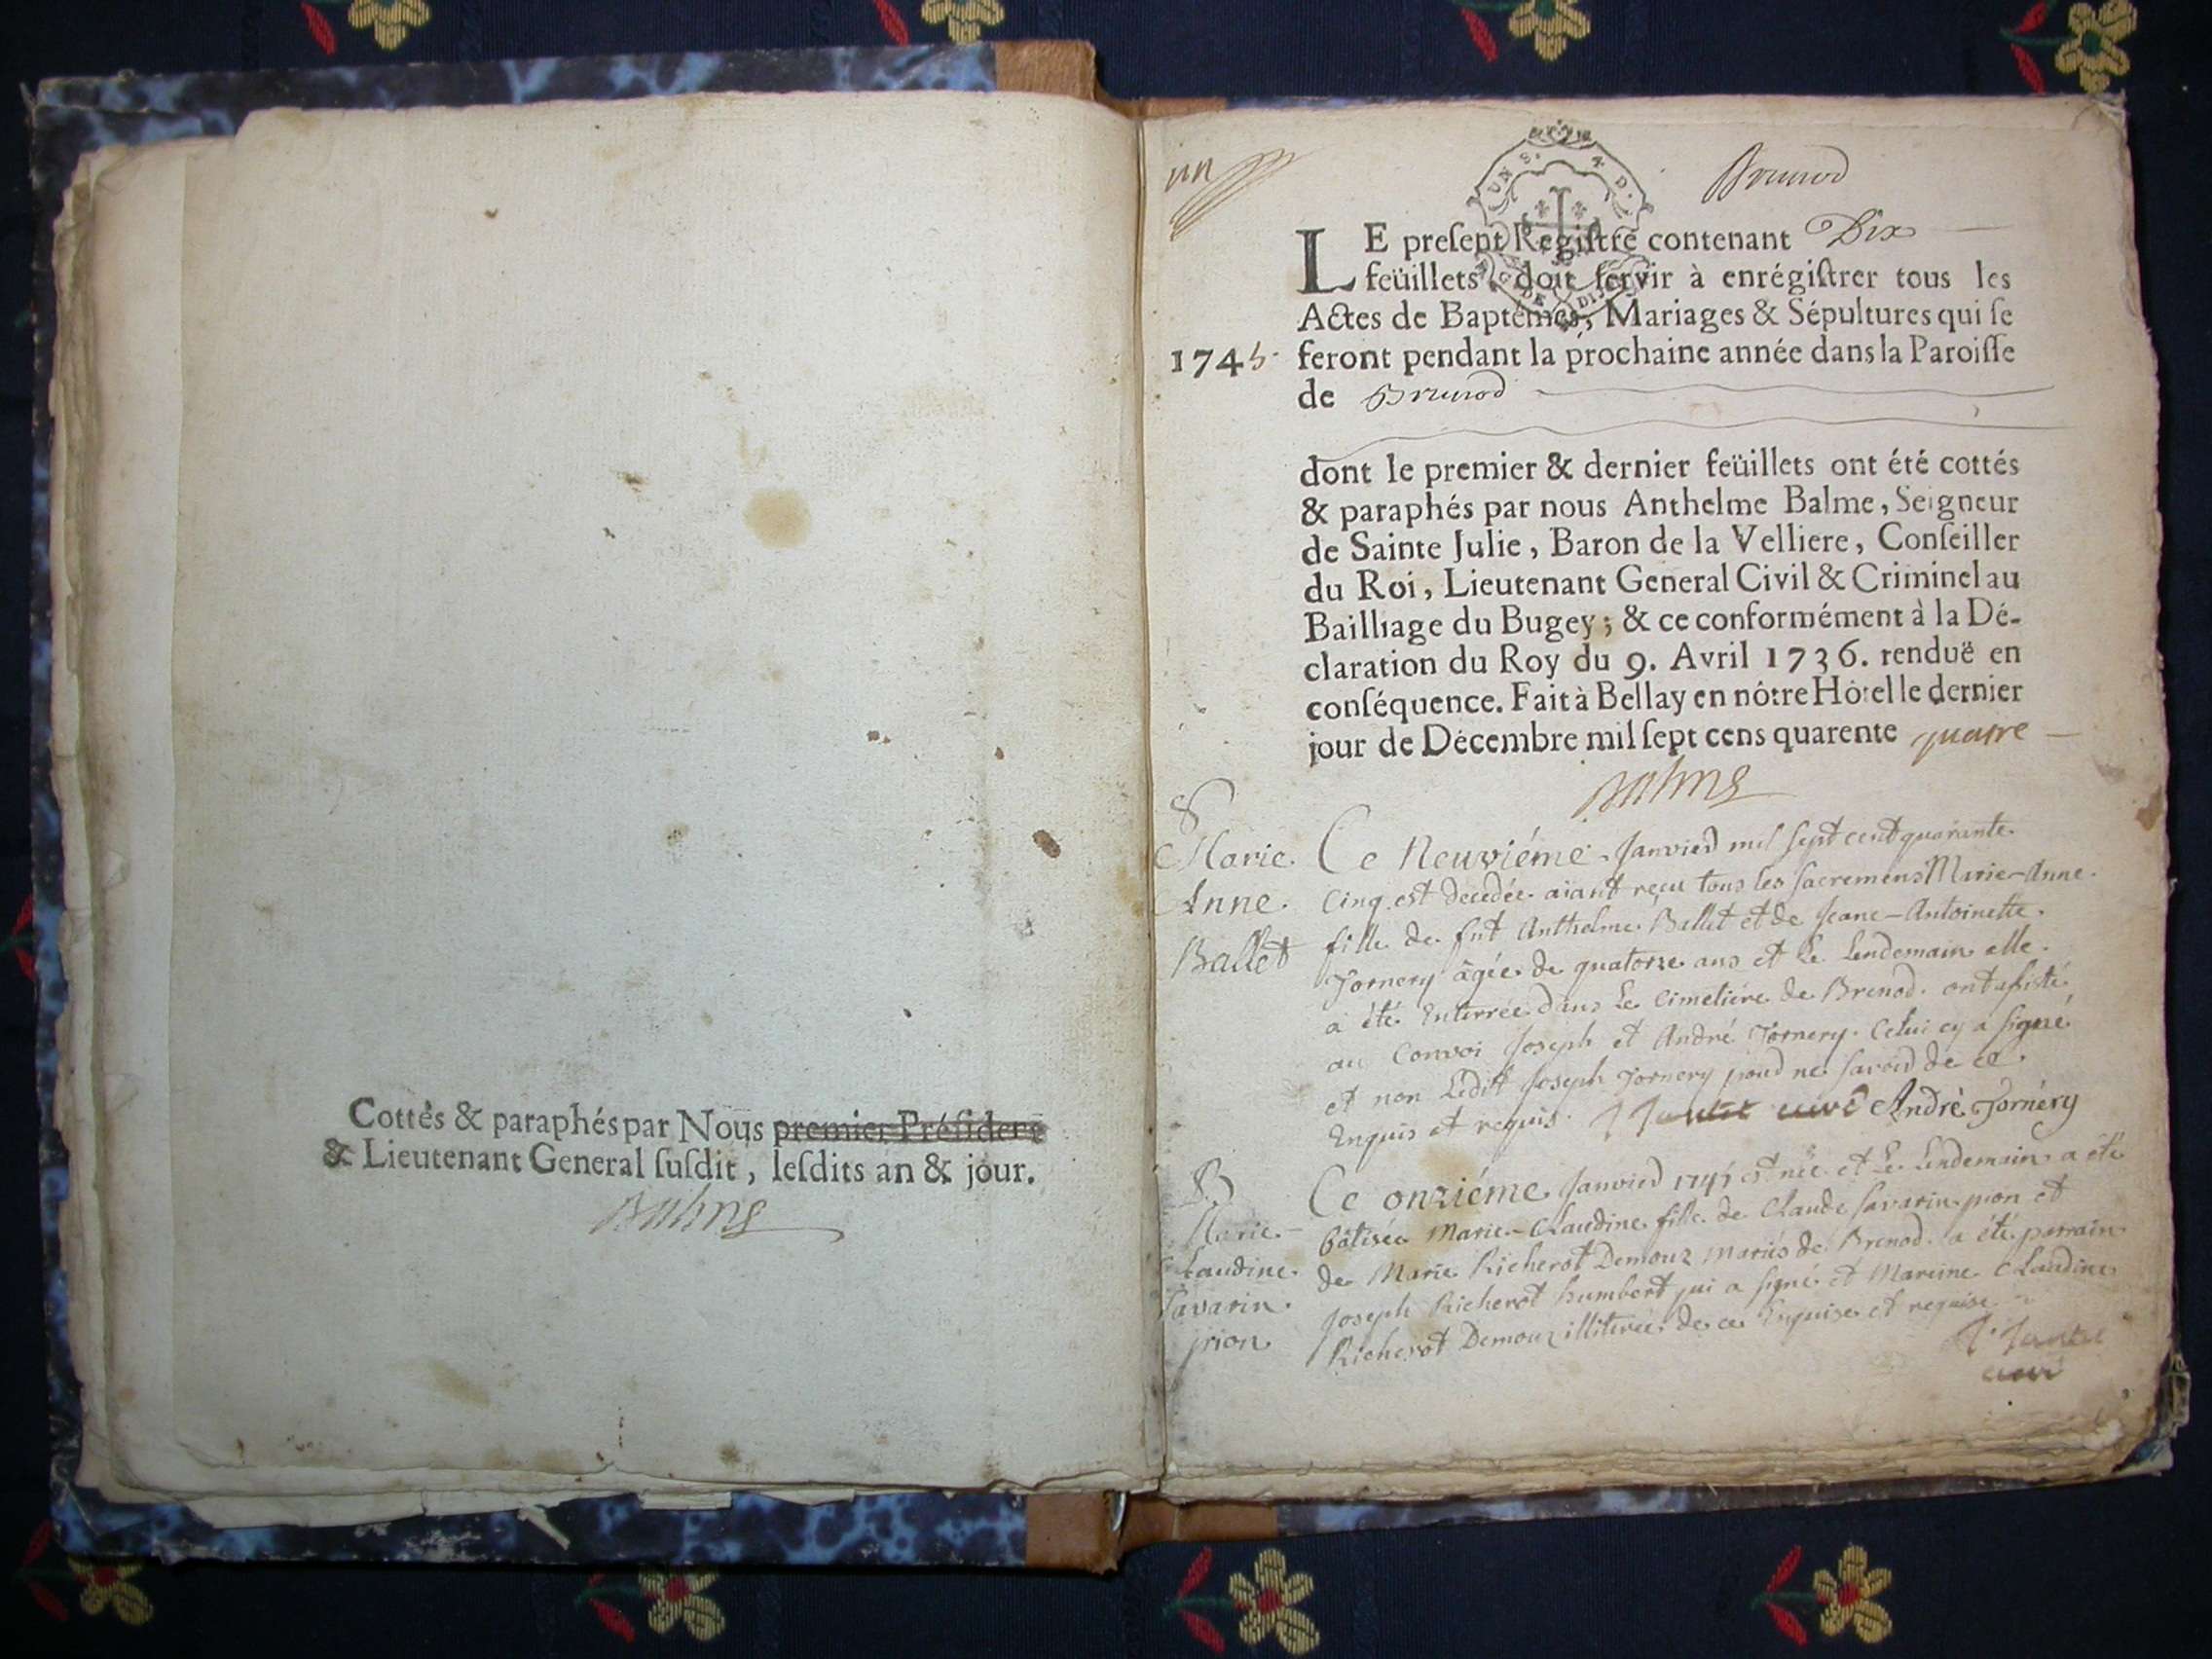 Cottés & paraphés par Nous premier Présidenr
& Lieutenant General ſuſdit, leſdits an & jour.
Balme
un
Brunod
UN S. 4 D.
LE preſent Regiſtre contenant Dix
feüillets doit ſervir à enrégiſtrer tous les
Actes de Baptêmes, Mariages & Sépultures qui ſe
1745. feront pendant la prochaine année dans la Paroiſſe
de Brunod
dont le premier & dernier feüillets ont été cottés
& paraphés par nous Anthelme Balme, Seigneur
de Sainte Julie, Baron de la Velliere, Conſeiller
du Roi, Lieutenant General Civil & Criminel au
Bailliage du Bugey; & ce conformément à la Dé-
claration du Roy du 9. Avril 1736. renduë en
conſéquence. Fait à Bellay en nôtre Hôtel le dernier
jour de Décembre mil ſept cens quarente quatre
Balme
S
Marie
Anne
Ballet
Ce Neuviéme Janvier mil sept cent quarante
Cinq est decedée aiant reçu tous les sacremens Marie-Anne
fille de fut Anthelme Ballet et de Jeane-Antoinette
Jornery âgée de quatorze ans et le lendemain elle
a été Enterrée dans le Cimetiére de Brenod. ont assisté
au Convoi Joseph et André Jornery. Celui cy a signé
et non Ledit Joseph Jornery pour ne savoir de ce
Enquis et requis. curé Andrè Jornéry
B
Marie
Claudine
Savarin
pion
Ce onziéme Janvier 1745 est née et le lendemain a été
bâtisée Marie-Claudine fille de Claude Savarin pion et
de Marie Richerot Demouz mariés de Brenod. a été parrain
Joseph Richerot humbert qui a signé et Mareine Claudine
Richerot Demouz illiterée de ce Enquise et requise.
curé